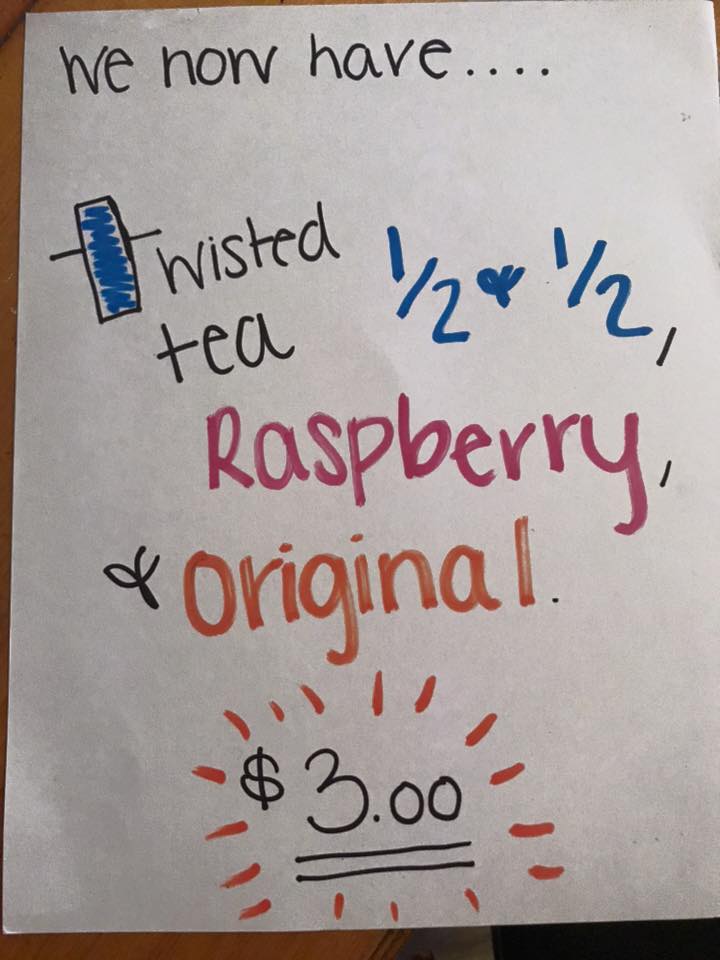 We now have....
Twisted 1/2 & 1/2,
tea
Raspberry,
& Original.
$3.00